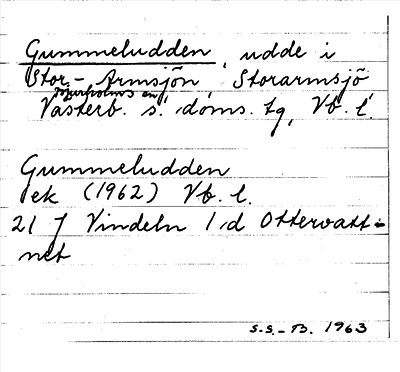 Gummeludden, udde i
Stor-Armsjön, Storarmsjö
Bjurholms sn,
Västerb. s. doms. tg, Vb. l.
Gummeludden
ek (1962) Vb. l.
21 J Vindeln 1d Ottervatt-
net
S.S.-B. 1963